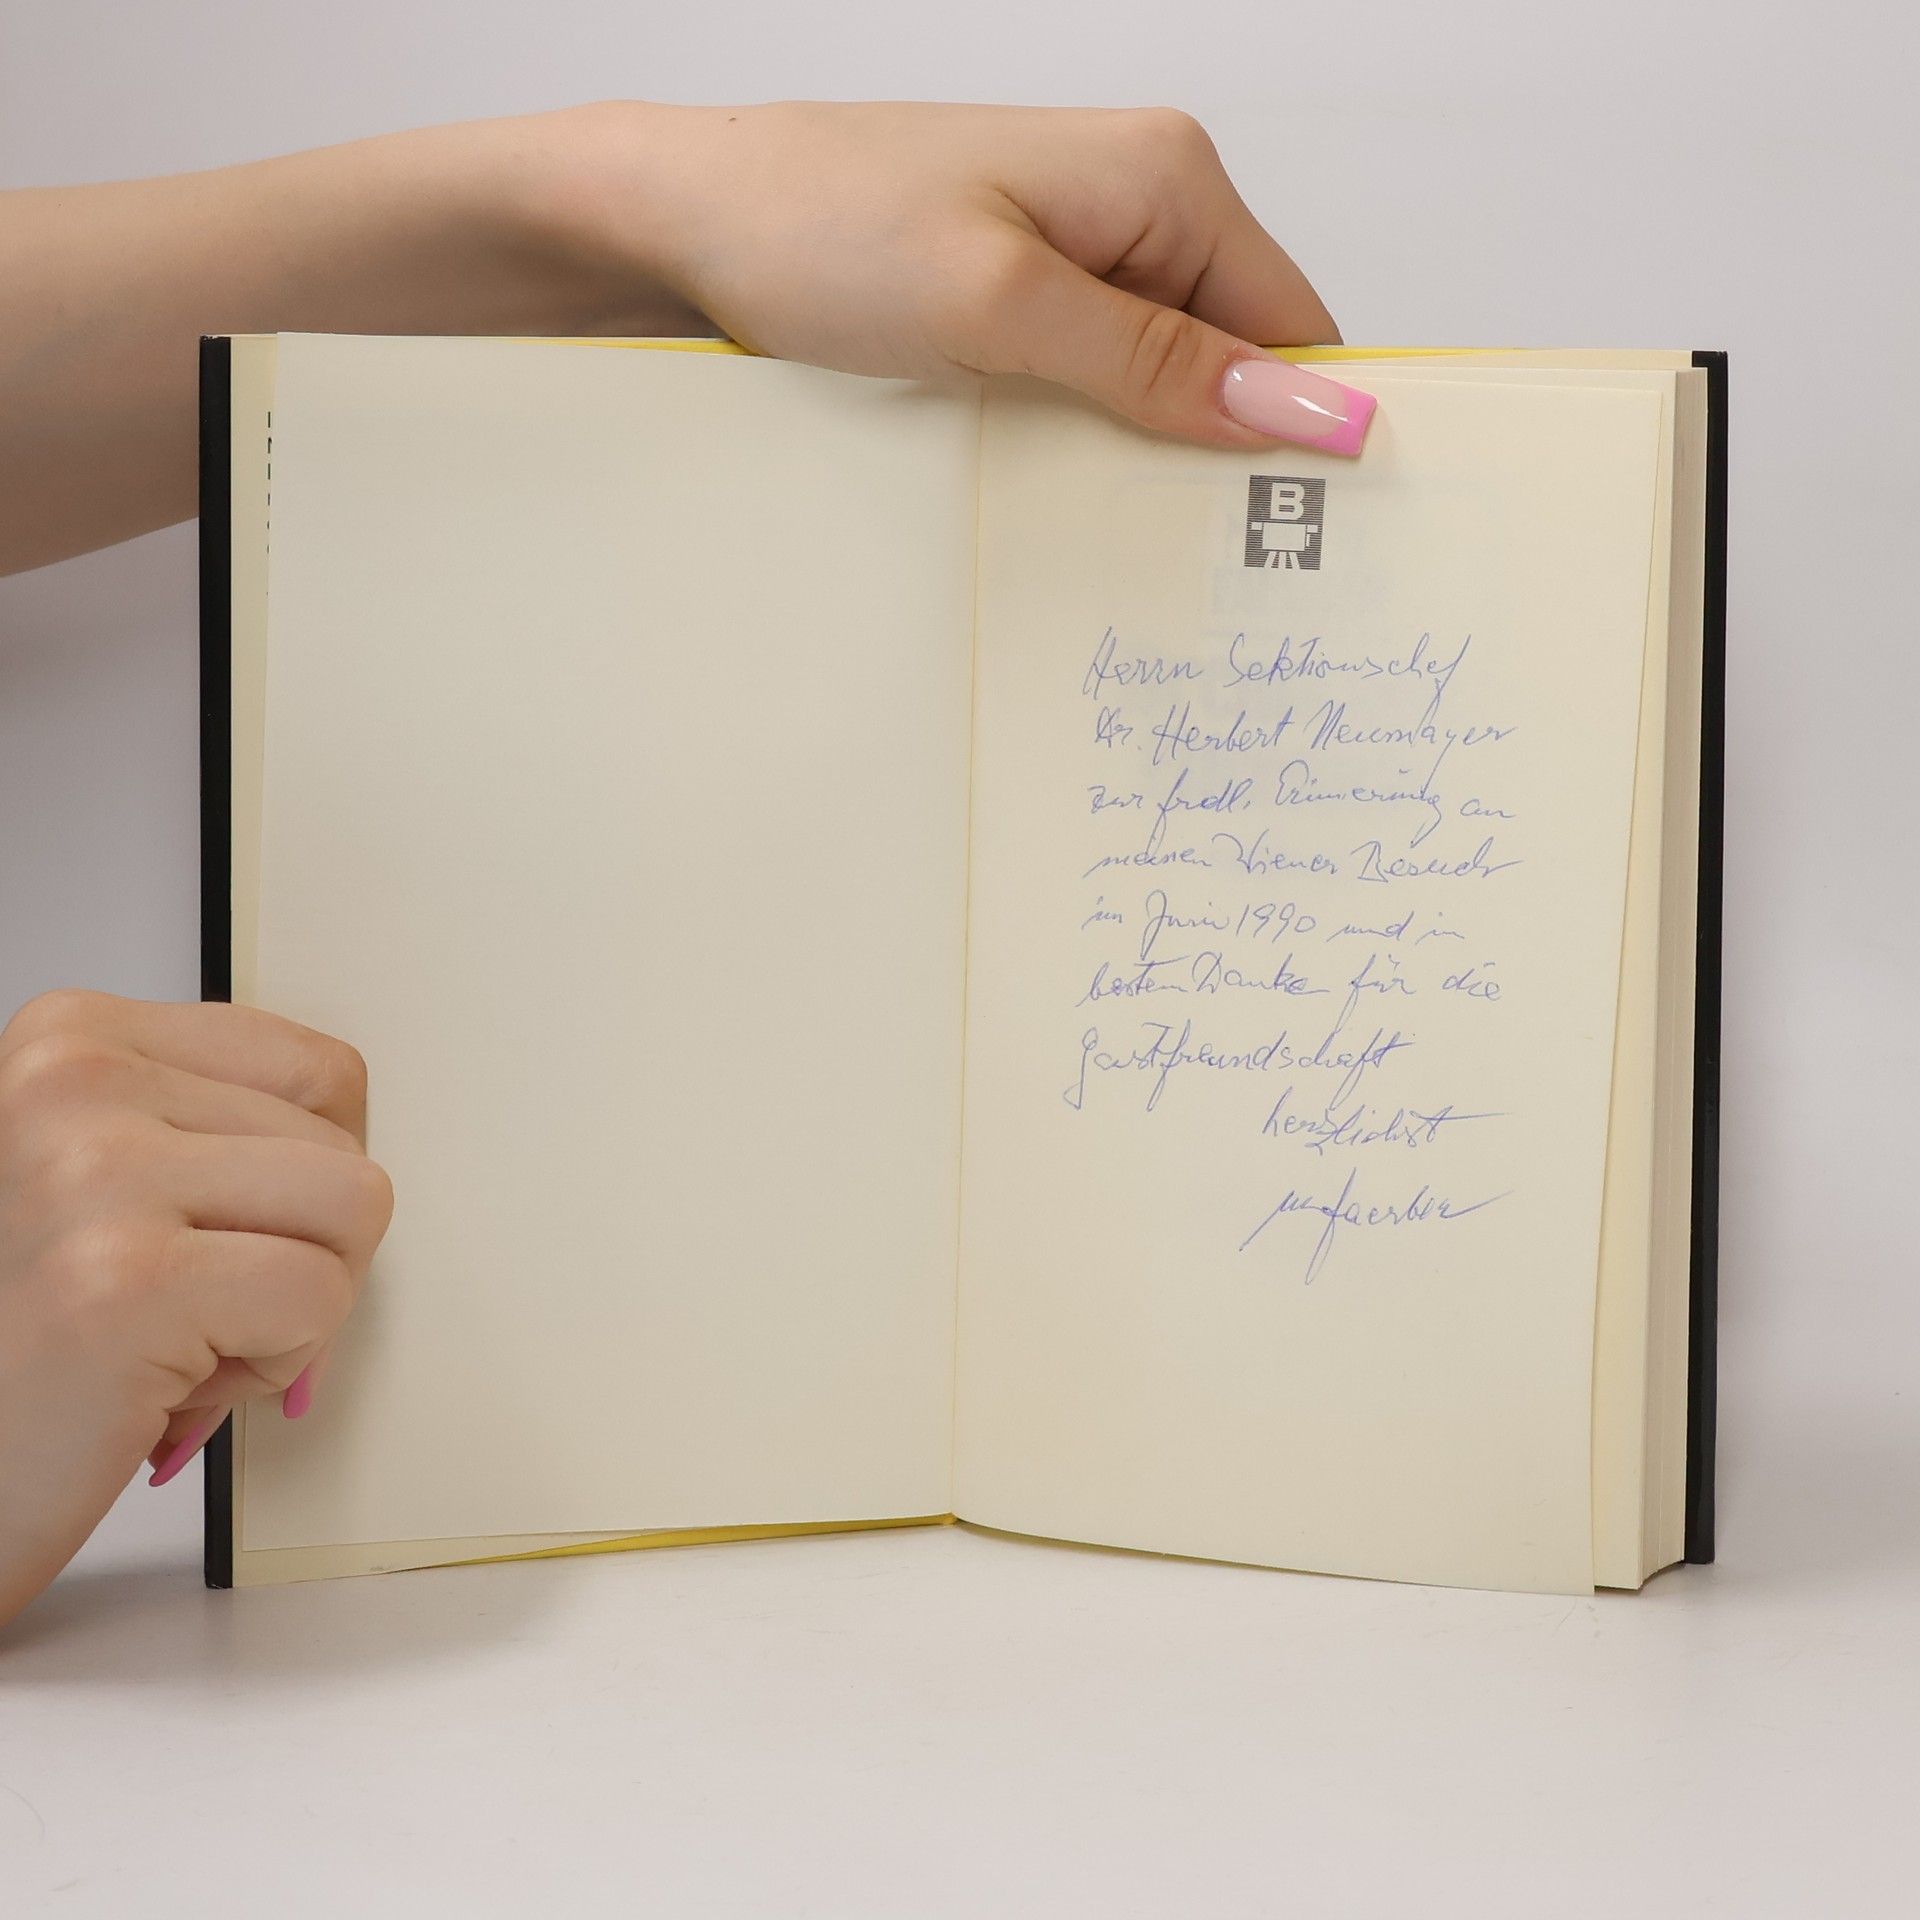 B
Herrn Sektionschef
Dr. Herbert Neumayer
zur frdl. Erinnerung an
meinen Wiener Besuch
im Juni 1990 und in
bestem Danke für die
Gastfreundschaft
herzlichst